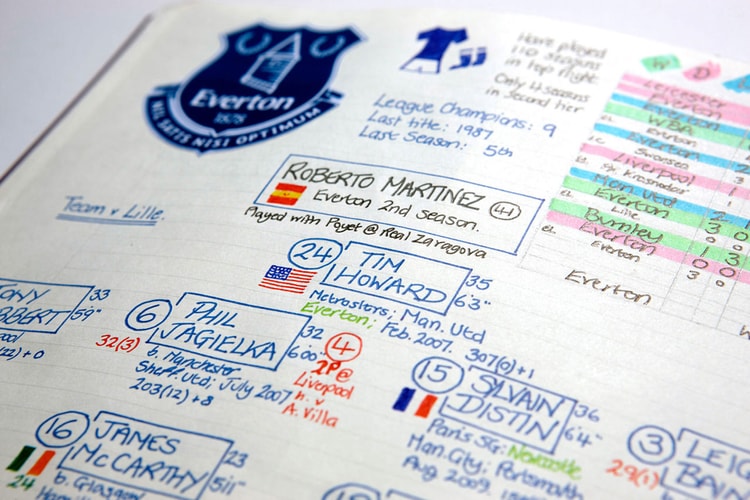 Everton
1878
NIL SATIS NISI OPTIMUM
Have played
110 seasons
in top flight
Only 4 seasons
in second tier
League Champions: 9
Last title: 1987
Last Season: 5th
W D
Leicester
Everton
WBA
Everton
EL
Everton
Swansea
Liverpool
EL
FC Krasnodar
Man. Utd 2
Everton
EL
Lille 0
Burnley 1 3
Everton 0 0
EL
Everton 3 0
Everton
ROBERTO MARTINEZ 41
Everton 2nd Season.
Played with Poyet @ Real Zaragova
Team v Lille
24 TIM
HOWARD
35
6'3"
Metrostars; Man. Utd
Everton; Feb. 2007.
307(0)+1
33
5'9"
6 PHIL
JAGIELKA
32
6'00"
32(3)
b. Manchester
Sheff. Utd; July 2007
203(12)+8
4
2P@
Liverpool
n. v
A. Villa
15 SYLVAIN
DISTIN
36
6'4"
Paris SG; Newcastle
Man. City; Portsmouth
Aug 2009
16 JAMES
McCARTHY
23
5'11"
24
b. Glasgow
3
29(1)